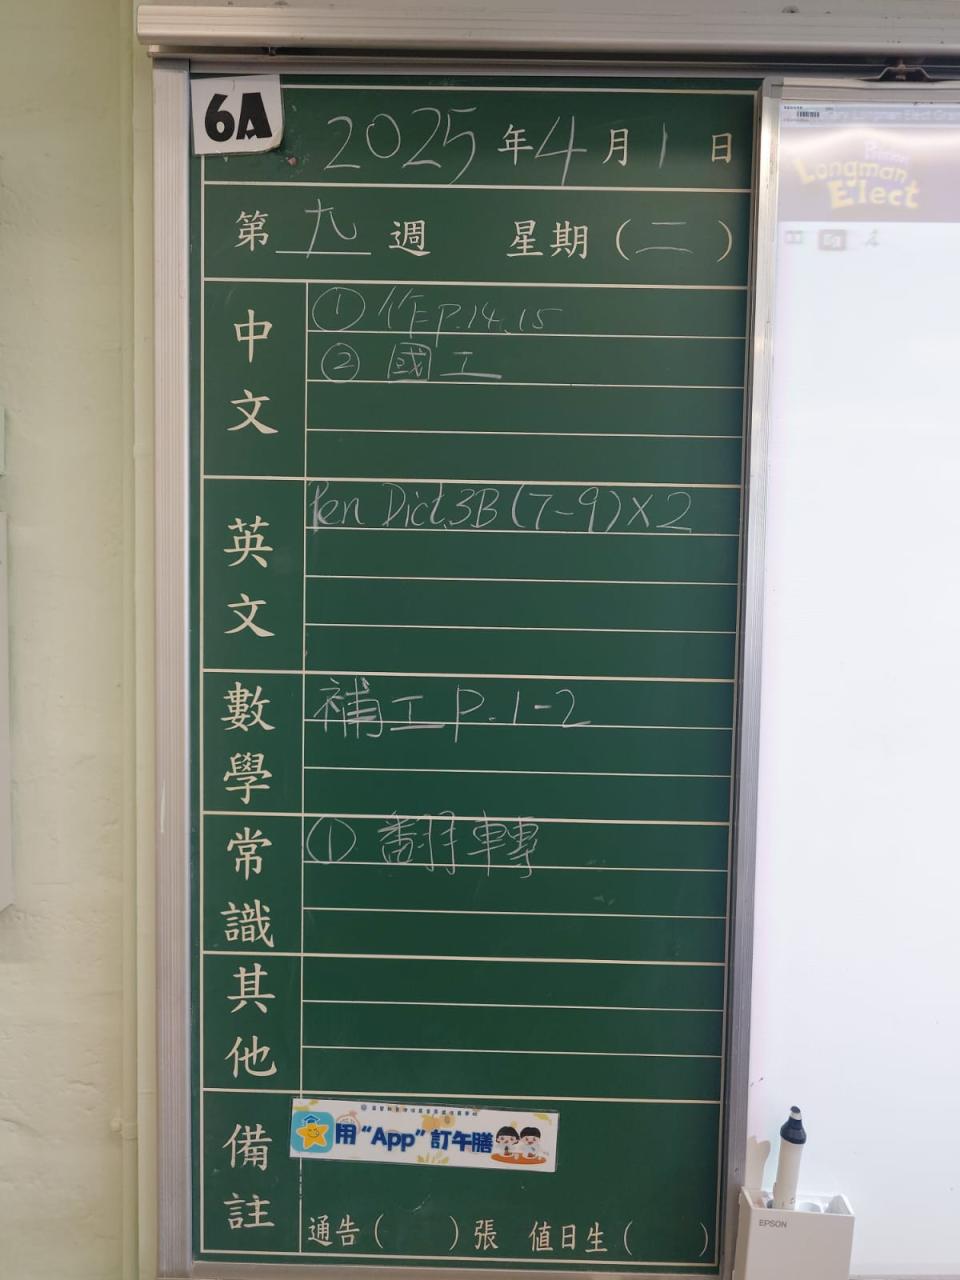 6A
2025年4月1日
第九週 星期(二)
中文
① 作P.14,15
② 國工
英文
Pen Dict.3B(7-9)×2
數學
補工P.1-2
常識
① 翻轉
其他
備註
用“App”訂午膳
通告( )張 值日生( )
Longman
Elect
EPSON